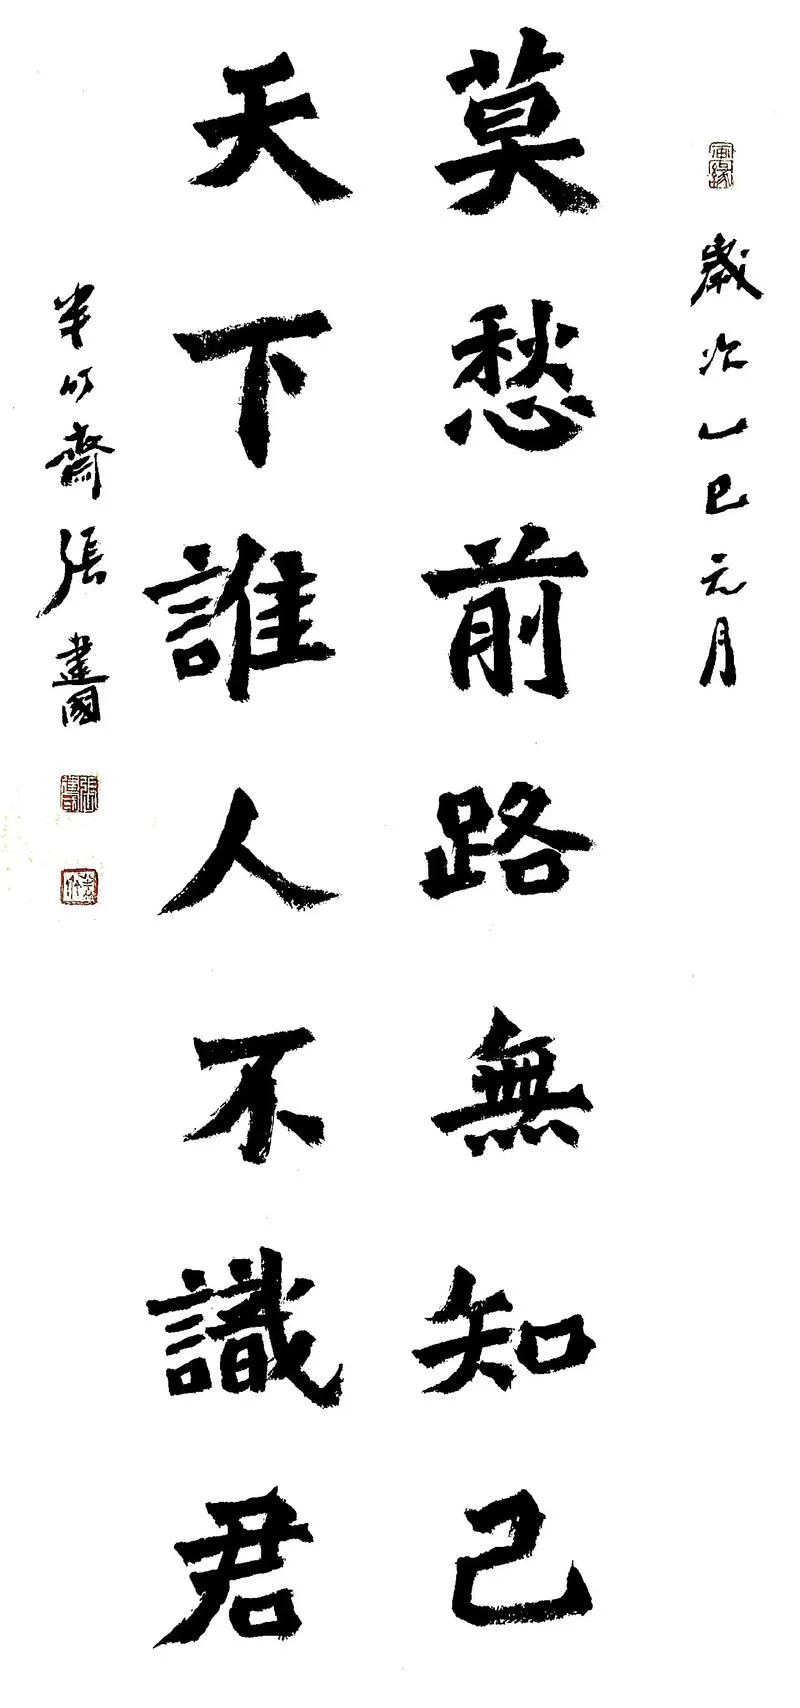 歲次乙巳元月
莫愁前路無知己
天下誰人不識君
半竹齋張建國